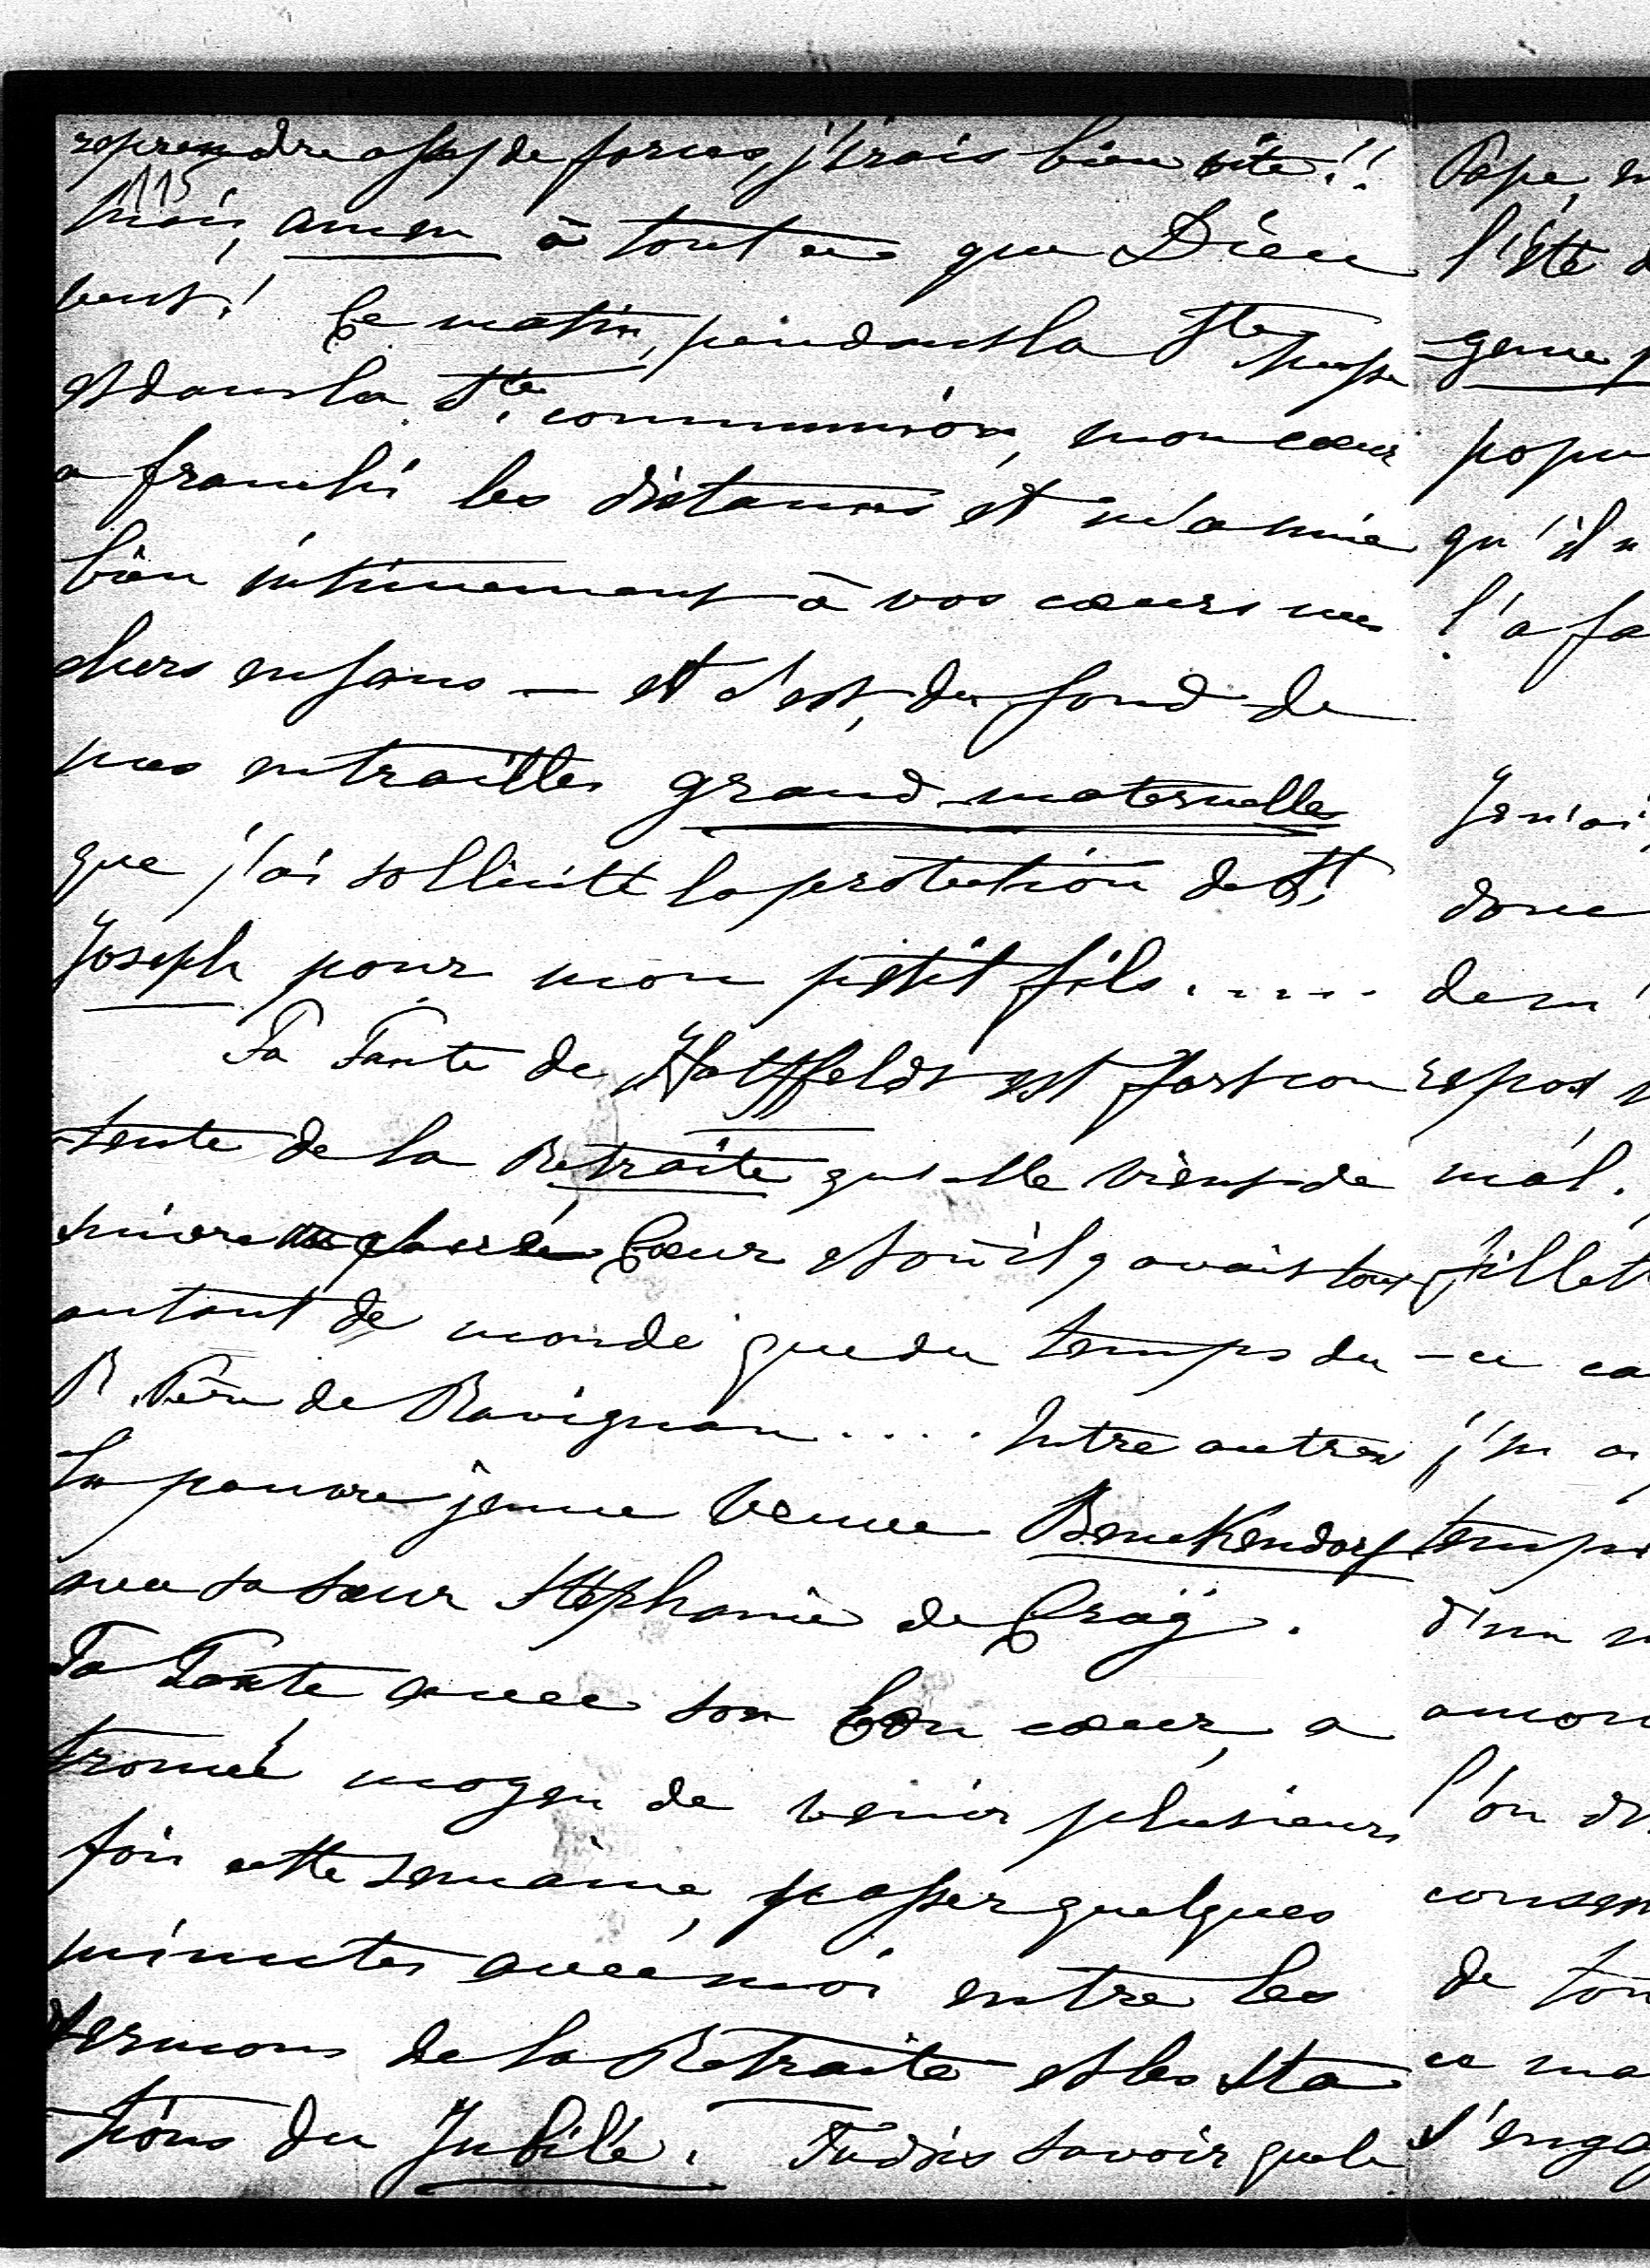 reprendre assez de forces, j'irais bien vite!!
115
mais, amen à tout ce que Dieu
veut! Ce matin, pendant la Ste Messe
et dans la Ste communion, mon cœur
a franchi les distances et m'a unie
bien intimement à vos cœurs mes
chers enfans — et c'est, du fond de
mes entrailles grand-maternelles
que j'ai sollicité la protection de St
Joseph pour mon petit fils.....
Ta Tante de Hatzfeldt est fort con
-tente de la Retraite qu'elle vient de
suivre Sacré Cœur et où il y avait tout
autant de monde que du temps du
R. Père de Ravignan.... Entre autres
la pauvre jeune veuve Benckendorf
avec sa sœur Stéphanie de Croÿ.
Ta Tante avec son bon cœur, a
trouvé moyen de venir plusieurs
fois cette semaine, passer quelques
minutes avec moi entre les
sermons de la Retraite et les Sta
-tions du Jubilé. Tu dois savoir que le
Pape,
l'été
-gence
popu
qu'il
l'a fa
Je n'ai
donc
de m'
repos
mal.
fillett
-ce ca
j'en ai
temps
d'un
amou
l'on
consen
de tou
ce ma
s'engag